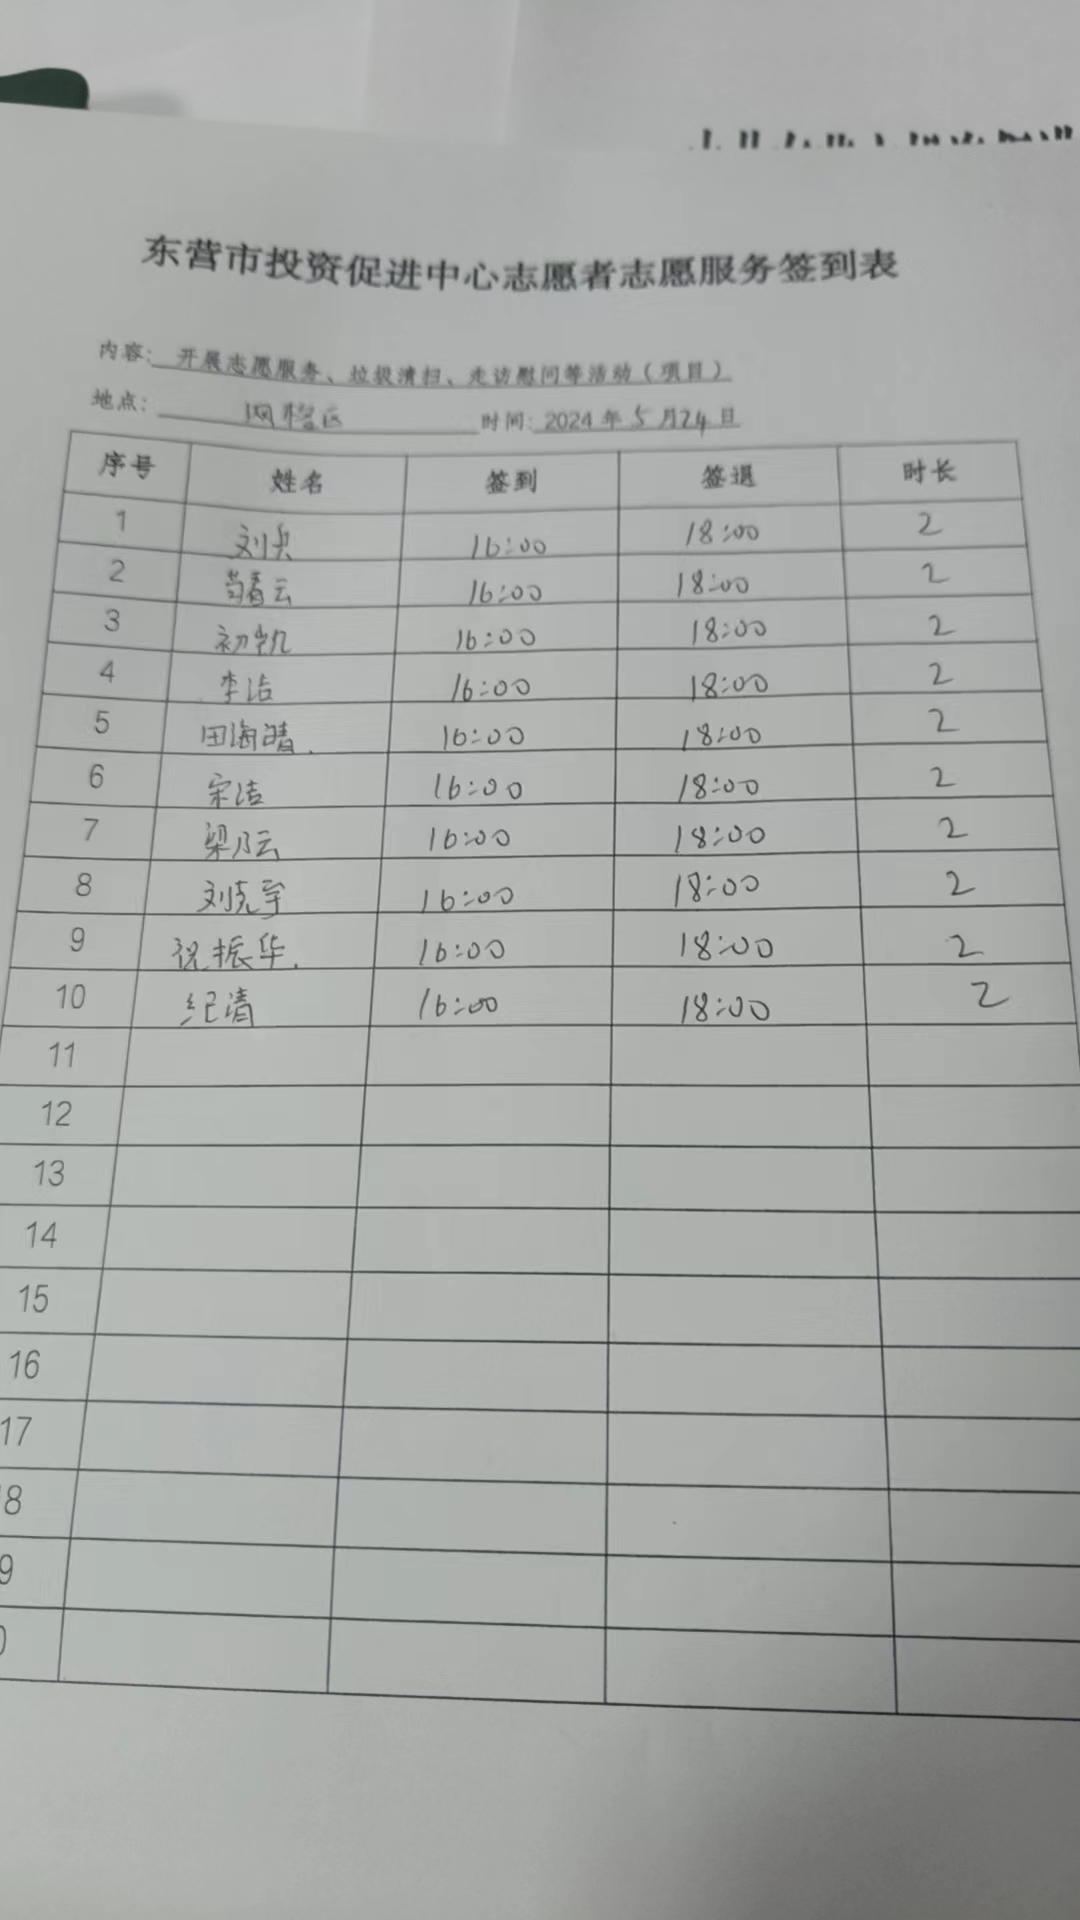 东营市投资促进中心志愿者志愿服务签到表
内容: 开展志愿服务、垃圾清扫、走访慰问等活动（项目）
地点: 网格区 时间: 2024 年 5 月 24 日
序号 姓名 签到 签退 时长
1 刘兵 16:00 18:00 2
2 春云 16:00 18:00 2
3 初帆 16:00 18:00 2
4 李洁 16:00 18:00 2
5 田海晴. 16:00 18:00 2
6 宋洁 16:00 18:00 2
7 梁乃云 16:00 18:00 2
8 刘克宇 16:00 18:00 2
9 祝振华. 16:00 18:00 2
10 纪清 16:00 18:00 2
11
12
13
14
15
16
17
8
9
0